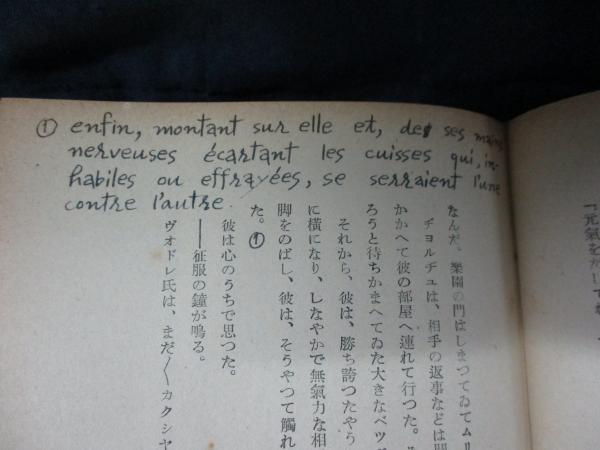 ① enfin, montant sur elle et, de ses mains
nerveuses écartant les cuisses qui, in-
habiles ou effrayées, se serraient l'une
contre l'autre.
なんだ。樂園の門はしまつてゐてムリ
チヨルヂユは、相手の返事などは
かかへて彼の部屋へ連れて行つた。
ろうと待ちかまへてゐた大きなベツ
それから、彼は、勝ち誇つたやう
に橫になり、しなやかで無氣力な相
脚をのばし、彼は、そうやつて觸れ
た。①
彼は心のうちで思つた。
――征服の鐘が鳴る。
ヴオドレ氏は、まだ〱カクシヤ